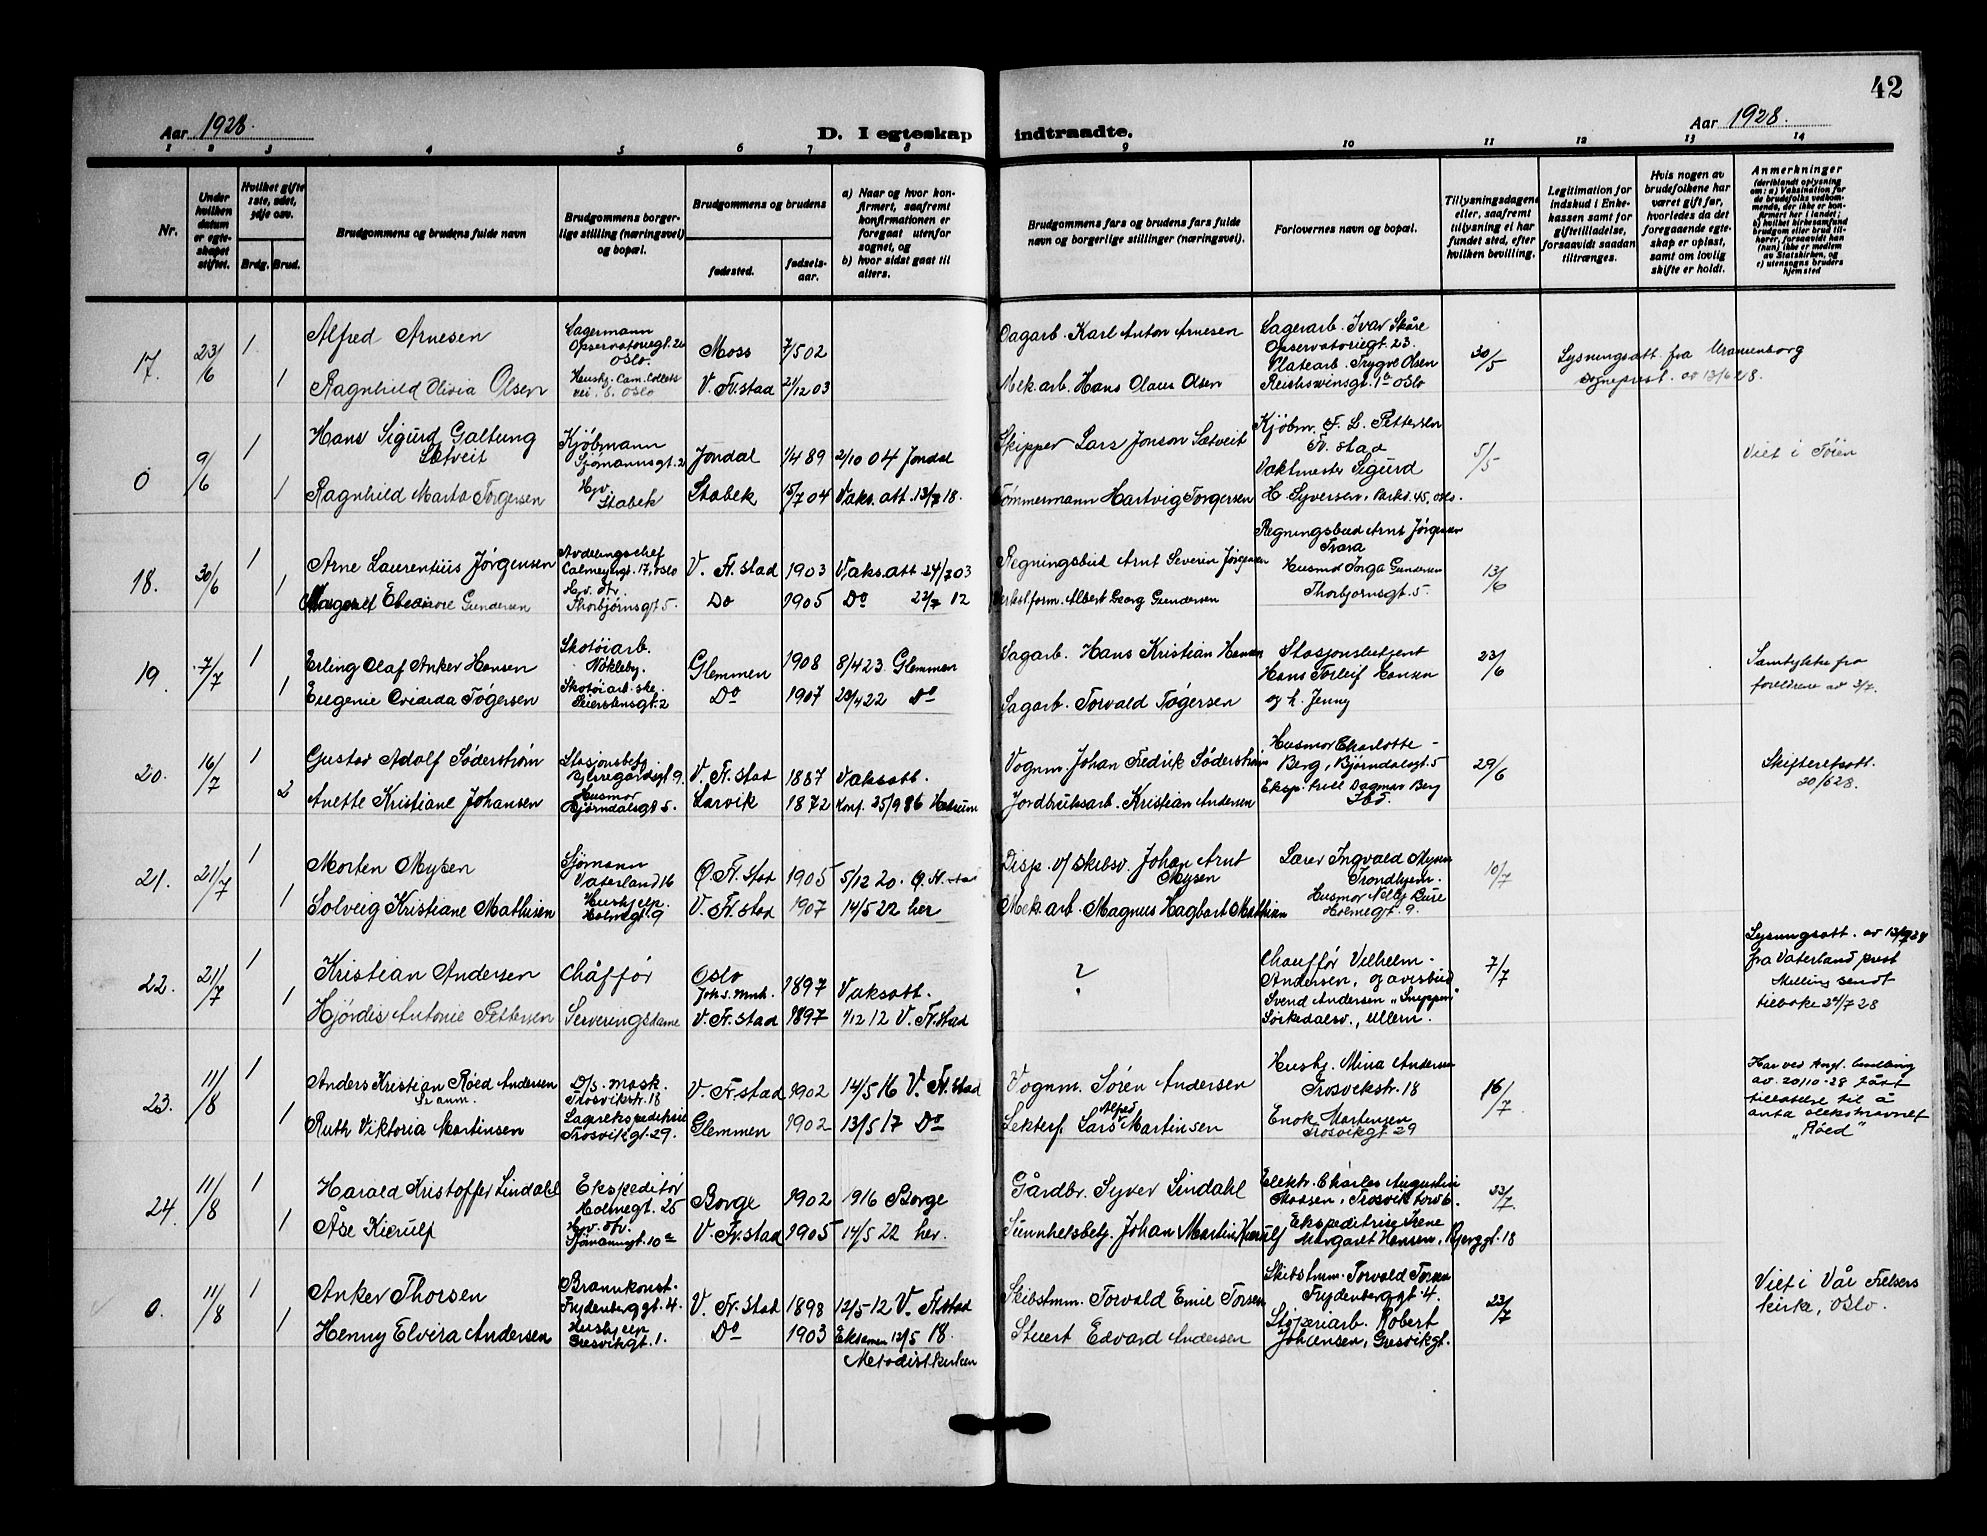 42
Aar 1928.
D. I egteskap indtraadte.
Aar 1928.
1 2 3 4 5 6 7 8 9 10 11 12 13 14
Nr.
Under hvilken datum er egteskapet stiftet.
Hvilket gifte 1ste, 2det, 3dje osv.
Brdg. Brud.
Brudgommens og brudens fulde navn
Brudgommens borgerlige stilling (næringsvei) og bopæl.
Brudgommens og brudens
fødested.
fødselsaar.
a) Naar og hvor konfirmert, saafremt konfirmationen er foregaat utenfor sognet, og
b) hvor sidst gaat til alters.
Brudgommens fars og brudens fars fulde navn og borgerlige stillinger (næringsvei).
Forlovernes navn og bopæl.
Tillysningsdagene eller, saafremt tillysning ei har fundet sted, efter hvilken bevilling.
Legitimation for indskud i Enkekassen samt for giftetilladelse, forsaavidt saadan tiltrænges.
Hvis nogen av brudefolkene har været gift før, hvorledes da det foregaaende egteskap er opløst, samt om lovlig skifte er holdt.
Anmerkninger
(deriblandt oplysning om: a) Vaksination for de brudefolks vedkommende, der ikke er konfirmert her i landet; b) hvilket kirkesamfund brudgom eller brud tilhører, forsaavidt han (hun) ikke er medlem av Statskirken, og c) utensogns bruders hjemsted
17. 23/6 1 Alfred Arnesen
Lagermann Observatoriegt. 2c Oslo.
Moss 7/5 02
Dagarb. Karl Anton Arnesen
Lagerarb. Ivar Skåre
Observatoriegt. 23.
30/5
Lysningsatt. fra Uranienborg
sogneprest. av 13/6 28.
1 Ragnhild Olivia Olsen
Hushj. Cam. Colletts vei 8. Oslo
V. Fr.stad 21/12 03
Mek arb. Hans Claus Olsen
Platearb. Trygve Olsen
Reichsweinsgt. 1b Oslo
0 9/6 1 Hans Sigurd Galtung
Sætveit
Kjøbmann
Sjømannsgt. 2
Jondal 1/4 89 2/10 04 Jondal
Skipper Lars Jonson Sætveit
Kjøbm. F. L. Pettersen
Fr. stad
5/5
Viet i Tøien
1 Ragnhild Marta Torgersen
Hjv. Stabek
Stabek 15/7 04 Vaks. att. 13/8 18.
Tømmermann Hartvig Torgersen
Vaktmester Sigurd
H. Syversen, Parkv. 45, Oslo.
18. 30/6 1 Arne Laurentius Jørgensen
Avdelingschef
Calmeyergt. 17, Oslo
V. Fr. stad 1903 Vaks. att 24/7 03
Regningsbud Arnt Severin Jørgensen
Regningsbud Arnt Jørgensen
Trara
13/6
1 Margaret Eleonore Gundersen
Hjv. dtr.
Thorbjørnsgt 5.
Do 1905 Do 22/7 12
Verkstform. Albert Georg Gundersen
Husmor Inga Gundersen
Thorbjørnsgt. 5.
19. 7/7 1 Erling Olaf Anker Hansen
Skotøiarb.
Nøkleby.
Glemmen 1908 8/4 23. Glemmen
Sagarb. Hans Kristian Hansen
Stasjonsbetjent
Hans Torleif Hansen
og h. Jenny
23/6
Samtykke fra
foreldrene av 3/7.
1 Eugenie Ovidia Tøgersen
Skotøiarb.ske
Seierstensgt. 2
Do 1907 23/4 22 Do
Sagarb. Torvald Tøgersen
20. 16/7 1 Gustav Adolf Söderström
Stasjonsbetj.
Bjerregårdsgt 9.
V. Fr. stad 1887 Vaksatt.
Vognm. Johan Fredrik Söderström
Husmor Charlotte
Berg, Bjørndalsgt. 5
29/6
Skifteretsatt.
20/6 28.
2 Anette Kristiane Johansen
Husmor
Bjørndalsgt 5.
Larvik 1872 Konf. 25/9 86 Hedrum
Jordbruksarb. Kristian Andersen
Eksp. trice Dagmar Berg
Ibd.
21. 21/7 1 Morten Mysen
Sjømann
Vaterland 16
Ø Fr. Stad 1905 5/12 20. Ø. Fr. stad
Disp. v/ skibsv. Johan Arnt
Mysen
Lærer Ingvald Mysen
Trondhjem.
10/7
1 Solveig Kristiane Mathisen
Hushjelp.
Holmegt. 9
V. Fr. stad 1907 14/5 22 her
Mek. arb. Magnus Hagbart Mathisen
Husmor Nelly Bure
Holmegt. 9.
22. 21/7 1 Kristian Andersen
Chåffør
Oslo
Joh.s. mnh.
1897 Vaksatt.
?
Chauffør Vilhelm
Andersen, og avisbud
Svend Andersen "Sneppen"
Sørkedalsv., Ullern.
7/7
Lysningsatt. av 13/7 28
fra Vaterland prest
Melling sendt
tilbake 24/7 28
1 Hjørdis Antonie Pettersen
Serveringsdame
V. Fr. stad 1897 1/12 12 V. Fr. stad
23. 11/8 1 Anders Kristian Røed Andersen
D/s. mask.
Trosvikstr. 18
V. Fr. stad 1902 14/5 16 V. Fr. stad
Vognm. Søren Andersen
Hushj. Mina Andersen
Trosvikstr. 18
16/7
Har ved Angf. bevilling
av 20/10-28 fått
tillatelse til å
anta slektsnavnet
"Røed"
1 Ruth Viktoria Martinsen
Lagerekspeditrise
Trosvikgt. 29.
Glemmen 1902 13/5 17 Do
Lekterf. Lars Alfred Martinsen
Enok Martinsen
Trosvikgt 29
24. 11/8 1 Harald Kristoffer Lindahl
Ekspeditør
Holmegt. 25
Borge 1902 1916 Borge
Gårdbr. Syver Lindahl
Elektr. Charles Augustin
Moosen, Trosvik torv 6.
23/7
1 Åse Kierulf
Hjv. dtr.
Sjømannsgt. 10a
V. Fr. stad 1905 14/5 22 her.
Sunnhetsbetj. Johan Martin Kierulf
Ekspeditrise Irene
Margaret Hansen, Bjerggt. 18
0. 11/8 1 Anker Thorsen
Brannkonst.
Frydenberggt. 4.
V. Fr. stad 1898 12/5-12 V. Fr. stad
Skibstmm. Torvald Emil Torsen
Skibstmm. Torvald Torsen
Frydenberggt. 4
23/7
Viet i Vår Frelsers
kirke, Oslo.
1 Henny Elvira Andersen
Hushjelp
Gresvikgt. 1.
Do 1903 Eksamen 12/5 18.
Metodistkirken
Stuert Edvard Andersen
Støperiarb. Robert
Johansen, Gresvikgt.